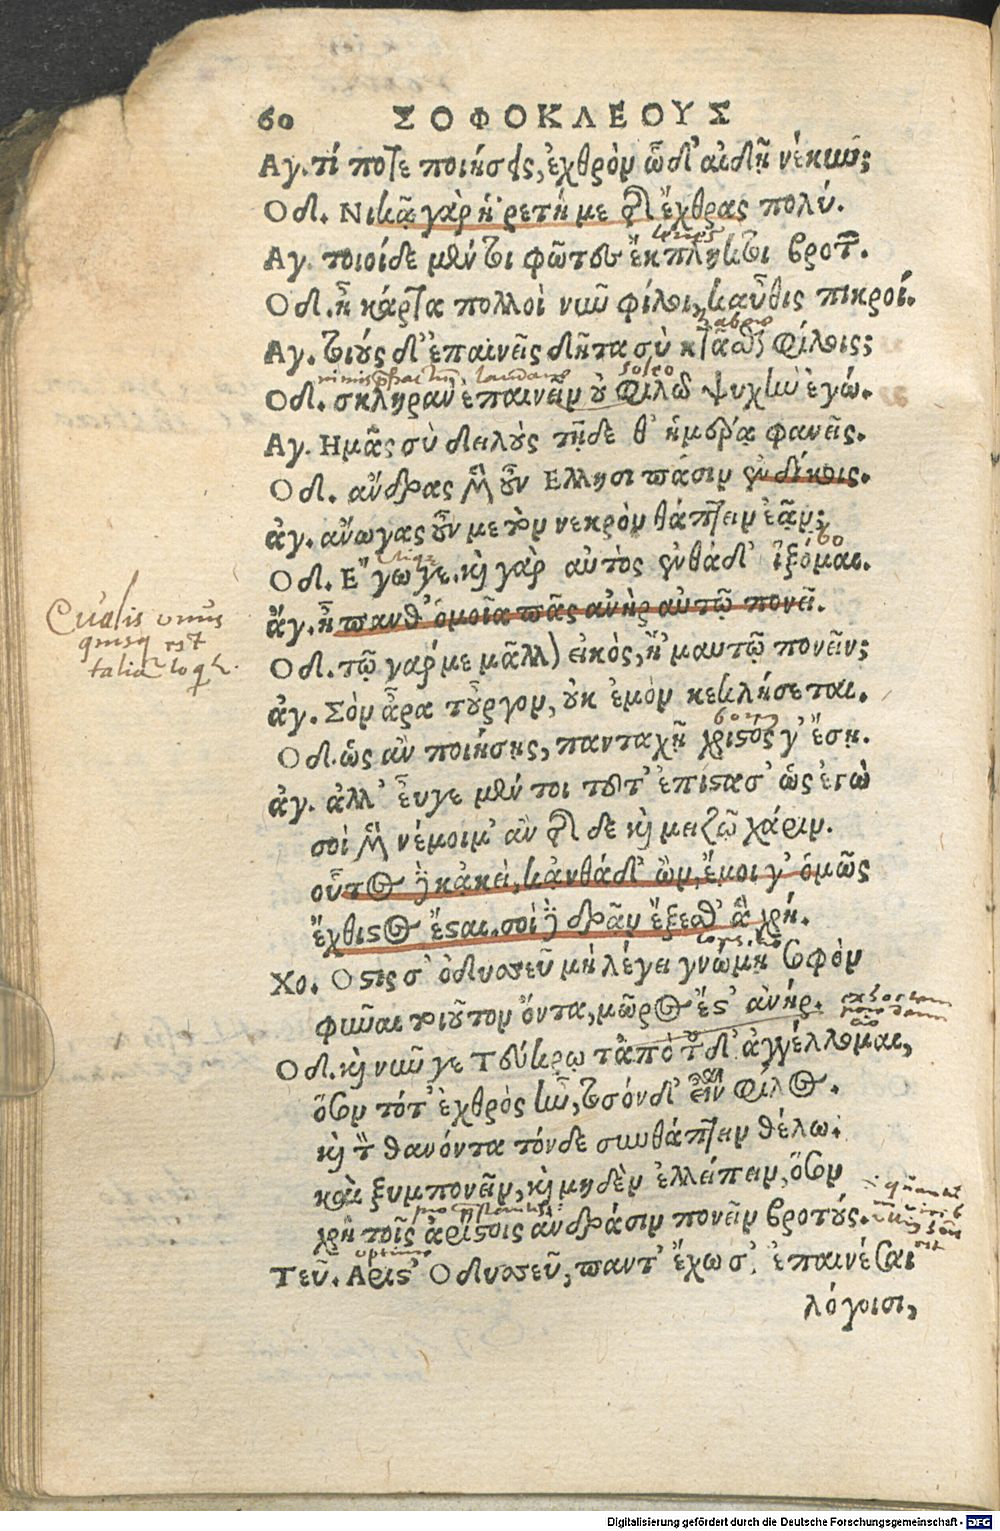 60 ΣΟΦΟΚΛΕΟΥΣ
Αγ. τί ποτε ποιήσεις, ἐχθρὸν ὧδ' αἰδῇ νέκυν;
Οδ. Νικᾷ γὰρ ἡ 'ρετή με τῆς ἔχθρας πολύ.
Αγ. τοιοίδε μέντοι φῶτες ἔκπληκτοι βροτῶν.
Οδ. ἦ κάρτα πολλοὶ νῦν φίλοι, καὖθις πικροί.
Αγ. τοιούς δ' ἐπαινεῖς δῆτα σὺ κτᾶσθαι φίλους;
soleo
laudare
Οδ. σκληρὰν ἐπαινεῖν οὐ φιλῶ ψυχὴν ἐγώ.
Αγ. Ημᾶς σὺ δειλοὺς τῇδε θ' ἡμέρᾳ φανεῖς.
Οδ. ἄνδρας μὲν οὖν Ελλησι πᾶσιν ἐνδίκους.
ἀγ. ἄνωγας οὖν με τὸν νεκρὸν θάπτειν ἐᾷν;
Οδ. Ἔγωγε. καὶ γὰρ αὐτὸς ἐνθάδ' ἵξομαι.
ἄγ. ἦ πανθ' ὁμοῖα πᾶς ἀνὴρ αὐτῷ πονεῖ.
Qualis unus
quisq est
talia loq
Οδ. τῷ γαρ με μᾶλλον εἰκὸς, ἢ 'μαυτῷ πονεῖν;
ἀγ. Σὸν ἆρα τοὖργον, οὐκ ἐμὸν κεκλήσεται.
Οδ. ὡς ἂν ποιήσῃς, πανταχῇ χρηστός γ' ἔσῃ.
ἀγ. ἀλλ' εὖγε μέντοι τοῦτ' ἐπίστασ' ὡς ἐγὼ
σοὶ μὲν νέμοιμ' ἂν τῆσδε καὶ μείζω χάριν.
οὗτος δὲ κἀκεῖ, κἀνθάδ' ὢν, ἔμοιγ' ὁμῶς
ἔχθιστος ἔσται. σοὶ δὲ δρᾷν ἔξεσθ' ἃ χρή.
Χο. Οστις σ' ὀδυσσεῦ μὴ λέγει γνώμῃ σοφὸν
φῦναι τοιοῦτον ὄντα, μῶρος ἔστ' ἀνήρ.
Οδ. καὶ νῦν γε Τεύκρῳ τἀπὸ τοῦδ' ἀγγέλλομαι,
ὅσον τότ' ἐχθρὸς ἦν, τοσόνδ' εἶναι φίλος.
καὶ τὸν θανόντα τόνδε συνθάπτειν θέλω.
καὶ ξυμπονεῖν, καὶ μηδὲν ἐλλείπειν, ὅσον
χρὴ τοῖς ἀρίστοις ἀνδράσιν πονεῖν βροτούς.
Τεῦ. Αριστ' Οδυσσεῦ, παντ' ἔχω σ' ἐπαινέσαι
λόγοισι,
Digitalisierung gefördert durch die Deutsche Forschungsgemeinschaft - DFG